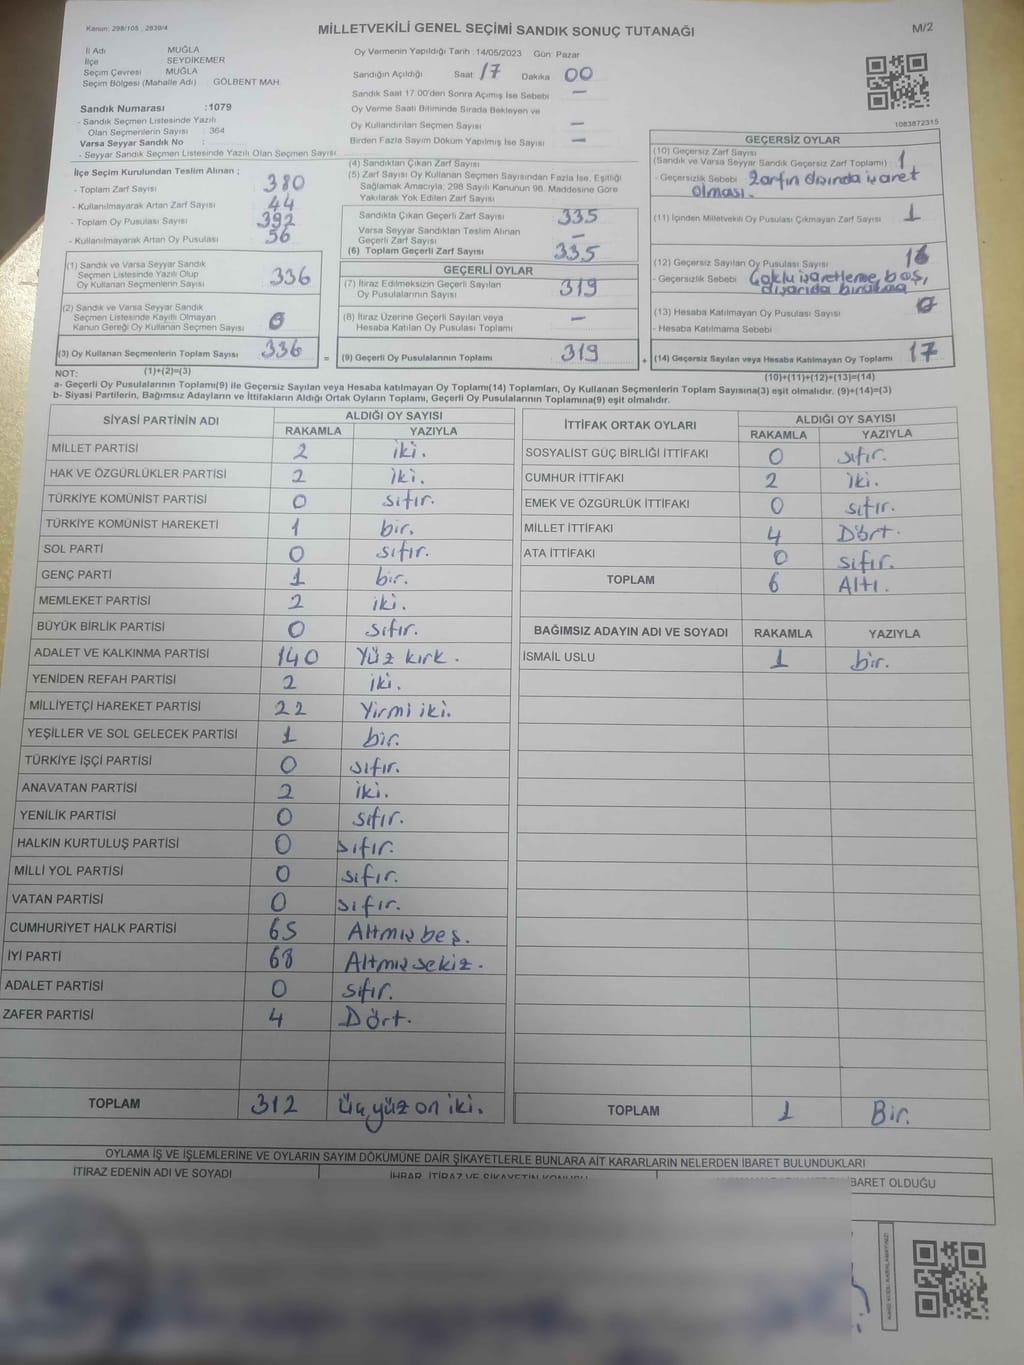 Kanun: 298/105 , 2839/4
MİLLETVEKİLİ GENEL SEÇİMİ SANDIK SONUÇ TUTANAĞI
M/2
İl Adı MUĞLA
İlçe SEYDİKEMER
Seçim Çevresi MUĞLA
Seçim Bölgesi (Mahalle Adı) GÖLBENT MAH.
Sandık Numarası :1079
- Sandık Seçmen Listesinde Yazılı
Olan Seçmenlerin Sayısı : 364
Varsa Seyyar Sandık No :
- Seyyar Sandık Seçmen Listesinde Yazılı Olan Seçmen Sayısı
İlçe Seçim Kurulundan Teslim Alınan ;
- Toplam Zarf Sayısı 380
- Kullanılmayarak Artan Zarf Sayısı 44
- Toplam Oy Pusulası Sayısı 392
- Kullanılmayarak Artan Oy Pusulası 56
(1) Sandık ve Varsa Seyyar Sandık
Seçmen Listesinde Yazılı Olup
Oy Kullanan Seçmenlerin Sayısı 336
(2) Sandık ve Varsa Seyyar Sandık
Seçmen Listesinde Kayıtlı Olmayan
Kanun Gereği Oy Kullanan Seçmen Sayısı 0
(3) Oy Kullanan Seçmenlerin Toplam Sayısı 336
Oy Vermenin Yapıldığı Tarih : 14/05/2023 Gün: Pazar
Sandığın Açıldığı Saat 17 Dakika 00
Sandık Saat 17:00'den Sonra Açımış İse Sebebi —
Oy Verme Saati Bitiminde Sırada Bekleyen ve
Oy Kullandırılan Seçmen Sayısı —
Birden Fazla Sayım Döküm Yapılmış İse Sayısı —
(4) Sandıktan Çıkan Zarf Sayısı
(5) Zarf Sayısı Oy Kullanan Seçmen Sayısından Fazla İse, Eşitliği
Sağlamak Amacıyla; 298 Sayılı Kanunun 98. Maddesine Göre
Yakılarak Yok Edilen Zarf Sayısı
Sandıkta Çıkan Geçerli Zarf Sayısı 335
Varsa Seyyar Sandıktan Teslim Alınan
Geçerli Zarf Sayısı —
(6) Toplam Geçerli Zarf Sayısı 335
GEÇERLİ OYLAR
(7) İtiraz Edilmeksizin Geçerli Sayılan
Oy Pusulalarının Sayısı 319
(8) İtiraz Üzerine Geçerli Sayılan veya
Hesaba Katılan Oy Pusulası Toplamı —
= (9) Geçerli Oy Pusulalarının Toplamı 319
1083872315
GEÇERSİZ OYLAR
(10) Geçersiz Zarf Sayısı
(Sandık ve Varsa Seyyar Sandık Geçersiz Zarf Toplamı) 1
- Geçersizlik Sebebi zarfın dışında işaret
olması.
(11) İçinden Milletvekili Oy Pusulası Çıkmayan Zarf Sayısı 1
(12) Geçersiz Sayılan Oy Pusulası Sayısı
- Geçersizlik Sebebi Çoklu işaretleme, boş,
dışarıda bırakma
(13) Hesaba Katılmayan Oy Pusulası Sayısı
- Hesaba Katılmama Sebebi
+ (14) Geçersiz Sayılan veya Hesaba Katılmayan Oy Toplamı 17
NOT: (1)+(2)=(3) (10)+(11)+(12)+(13)=(14)
a- Geçerli Oy Pusulalarının Toplamı(9) ile Geçersiz Sayılan veya Hesaba katılmayan Oy Toplamı(14) Toplamları, Oy Kullanan Seçmenlerin Toplam Sayısına(3) eşit olmalıdır. (9)+(14)=(3)
b- Siyasi Partilerin, Bağımsız Adayların ve İttifakların Aldığı Ortak Oyların Toplamı, Geçerli Oy Pusulalarının Toplamına(9) eşit olmalıdır.
SİYASİ PARTİNİN ADI ALDIĞI OY SAYISI
RAKAMLA YAZIYLA
MİLLET PARTİSİ 2 iki.
HAK VE ÖZGÜRLÜKLER PARTİSİ 2 iki.
TÜRKİYE KOMÜNİST PARTİSİ 0 sıfır.
TÜRKİYE KOMÜNİST HAREKETİ 1 bir.
SOL PARTİ 0 sıfır.
GENÇ PARTİ 1 bir.
MEMLEKET PARTİSİ 2 iki.
BÜYÜK BİRLİK PARTİSİ 0 sıfır.
ADALET VE KALKINMA PARTİSİ 140 Yüz kırk.
YENİDEN REFAH PARTİSİ 2 iki.
MİLLİYETÇİ HAREKET PARTİSİ 22 Yirmi iki.
YEŞİLLER VE SOL GELECEK PARTİSİ 1 bir.
TÜRKİYE İŞÇİ PARTİSİ 0 sıfır.
ANAVATAN PARTİSİ 2 iki.
YENİLİK PARTİSİ 0 sıfır.
HALKIN KURTULUŞ PARTİSİ 0 sıfır.
MİLLİ YOL PARTİSİ 0 sıfır.
VATAN PARTİSİ 0 sıfır.
CUMHURİYET HALK PARTİSİ 65 Altmış beş.
İYİ PARTİ 68 Altmış sekiz.
ADALET PARTİSİ 0 sıfır.
ZAFER PARTİSİ 4 Dört.
TOPLAM 312 Üç yüz on iki.
İTTİFAK ORTAK OYLARI ALDIĞI OY SAYISI
RAKAMLA YAZIYLA
SOSYALİST GÜÇ BİRLİĞİ İTTİFAKI 0 sıfır.
CUMHUR İTTİFAKI 2 iki.
EMEK VE ÖZGÜRLÜK İTTİFAKI 0 sıfır.
MİLLET İTTİFAKI 4 Dört.
ATA İTTİFAKI 0 sıfır.
TOPLAM 6 Altı.
BAĞIMSIZ ADAYIN ADI VE SOYADI RAKAMLA YAZIYLA
İSMAİL USLU 1 bir.
TOPLAM 1 Bir.
OYLAMA İŞ VE İŞLEMLERİNE VE OYLARIN SAYIM DÖKÜMÜNE DAİR ŞİKAYETLERLE BUNLARA AİT KARARLARIN NELERDEN İBARET BULUNDUKLARI
İTİRAZ EDENİN ADI VE SOYADI
İHBAR, İTİRAZ VE ŞİKAYETİN KONUSU
İBARET OLDUĞU